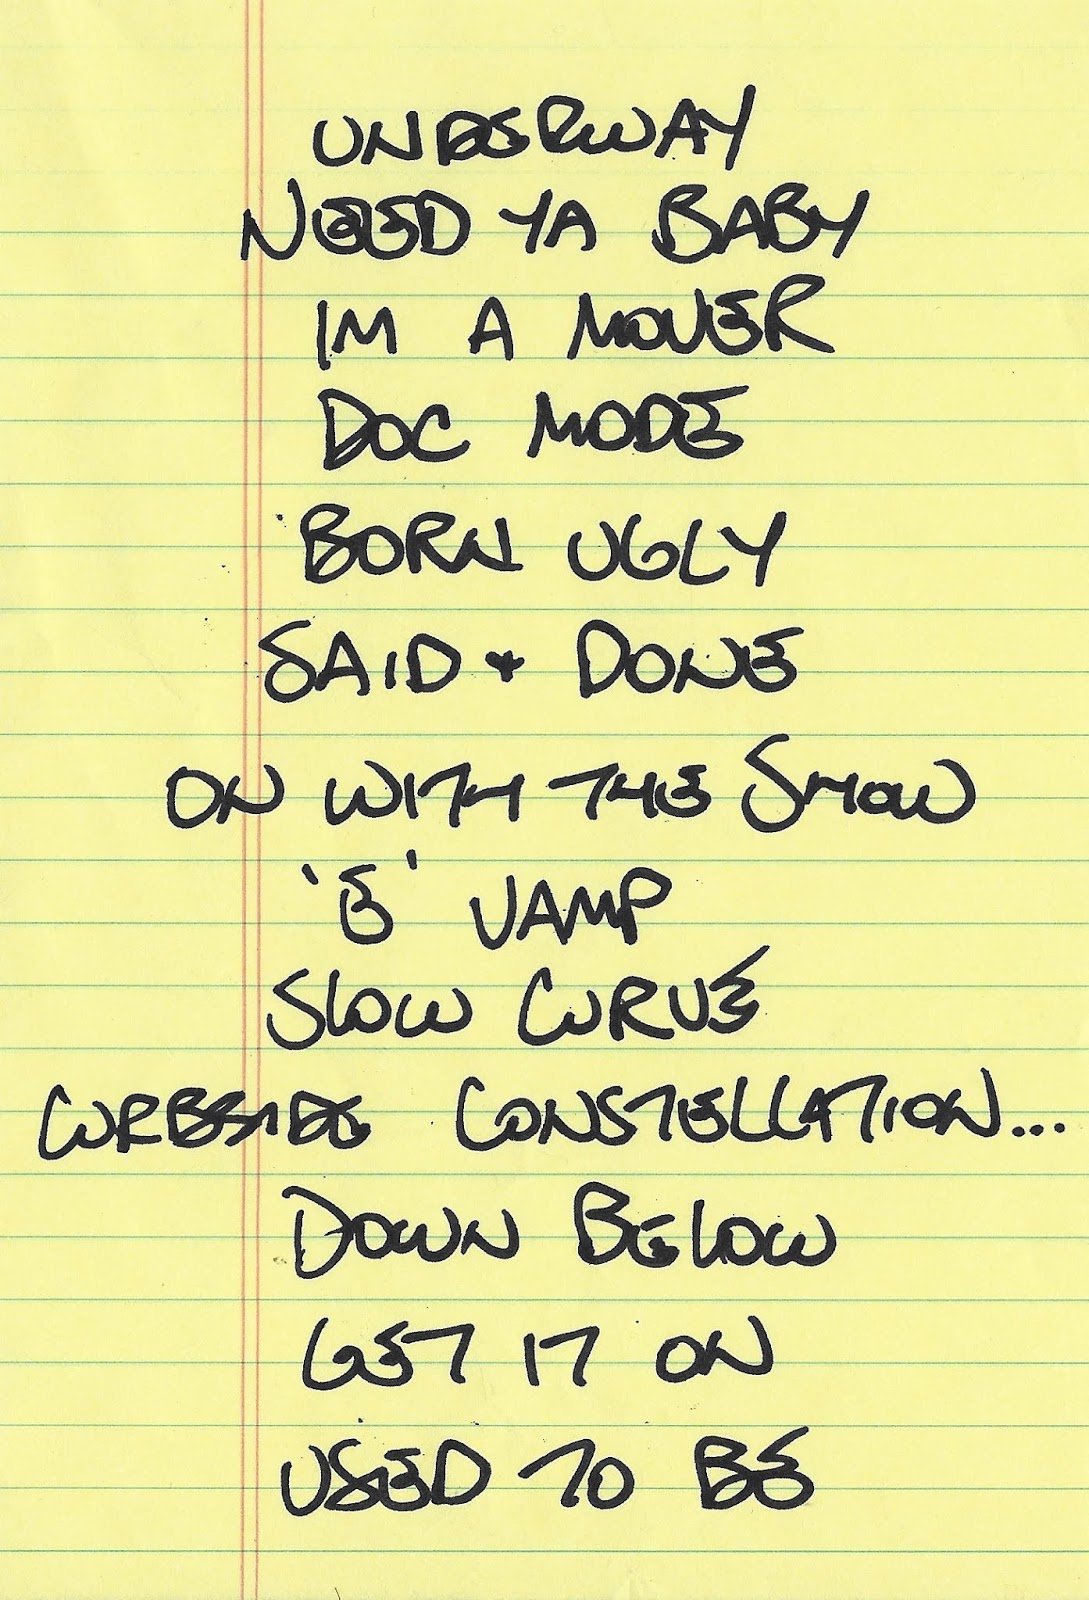 UNDERWAY
NEED YA BABY
IM A MOVER
DOC MODE
BORN UGLY
SAID + DONE
ON WITH THE SHOW
'E' VAMP
SLOW CURVE
CURBSIDE CONSTELLATION...
DOWN BELOW
GET IT ON
USED TO BE